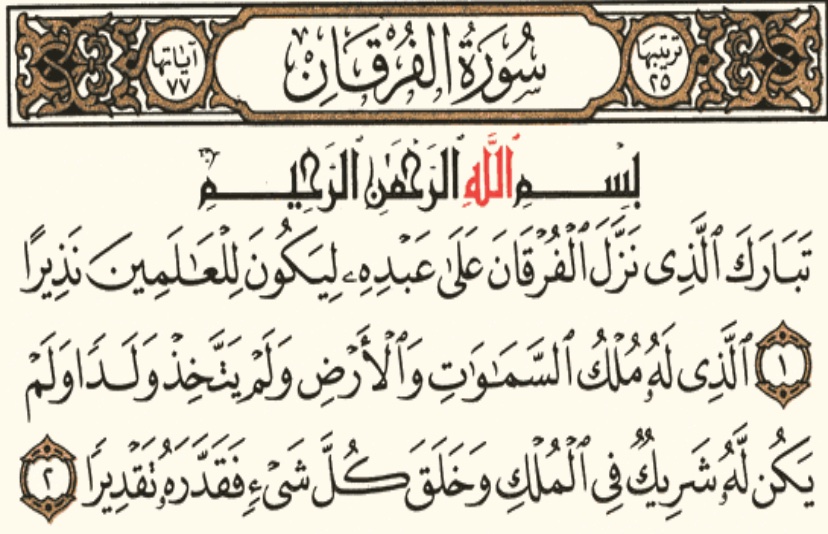 ترتيبها ٢٥
سُورَةُ الفُرْقَانِ
آياتها ٧٧
بِسْمِ اللَّهِ الرَّحْمَٰنِ الرَّحِيمِ
تَبَارَكَ ٱلَّذِى نَزَّلَ ٱلْفُرْقَانَ عَلَىٰ عَبْدِهِۦ لِيَكُونَ لِلْعَـٰلَمِينَ نَذِيرًا
١ ٱلَّذِى لَهُۥ مُلْكُ ٱلسَّمَـٰوَٰتِ وَٱلْأَرْضِ وَلَمْ يَتَّخِذْ وَلَـدًا وَلَمْ
يَكُن لَّهُۥ شَرِيكٌ فِى ٱلْمُلْكِ وَخَلَقَ كُلَّ شَىْءٍ فَقَدَّرَهُۥ تَقْدِيرًا ٢